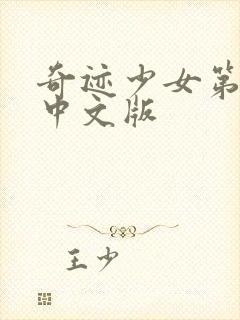 奇迹少女第
中文版
王少